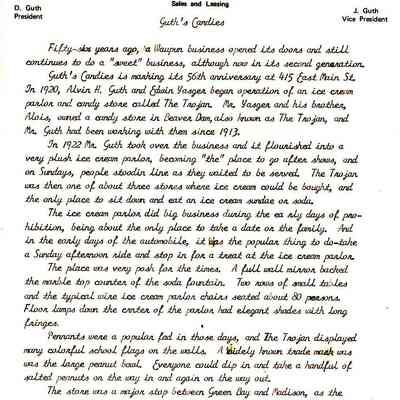 Sales and Leasing
D. Guth
President
J. Guth
Vice President
Guth's Candies
Fifty-six years ago, a Waupun business opened its doors and still
continues to do a "sweet" business, although now in its second generation.
Guth's Candies is marking its 56th anniversary at 415 East Main St.
In 1920, Alvin H. Guth and Edwin Yasger began operation of an ice cream
parlor and candy store called The Trojan. Mr. Yasger and his brother,
Alois, owned a candy store in Beaver Dam, also known as The Trojan, and
Mr. Guth had been working with them since 1913.
In 1922 Mr. Guth took over the business and it flourished into a
very plush ice cream parlor, becoming "the" place to go after shows, and
on Sundays, people stoodin line as they waited to be served. The Trojan
was then one of about three stores where ice cream could be bought, and
the only place to sit down and eat an ice cream sundae or soda.
The ice cream parlor did big business during the ea rly days of pro-
hibition, being about the only place to take a date or the family. And
in the early days of the automobile, it was the popular thing to do-take
a Sunday afternoon ride and stop in for a treat at the ice cream parlor.
The place was very posh for the times. A full wall mirror backed
the marble top counter of the soda fountain. Two rows of small tables
and the typical wire ice cream parlor chairs seated about 80 persons.
Floor lamps down the center of the parlor had elegant shades with long
fringes.
Pennants were a popular fad in those days, and the Trojan displayed
many colorful school flags on the walls. A widely known trade mark was
was the large peanut bowl. Everyone could dip in and take a handful of
salted peanuts on the way in and again on the way out.
The store was a major stop between Green Bay and Madison, as the